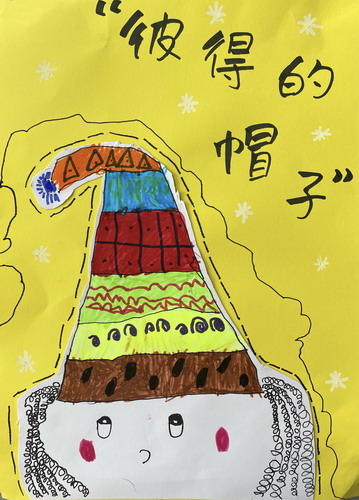 “彼得的
帽子”